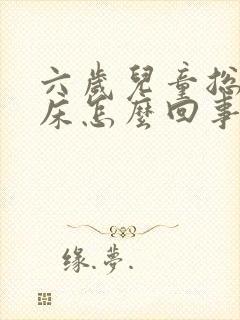 六歲兒童總
床怎麼回事
缘.梦.